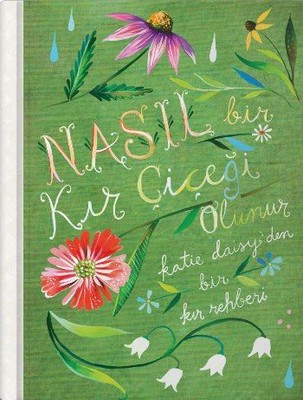 NASIL bir
Kır Çiçeği
Olunur
katie daisy'den
bir
kır rehberi